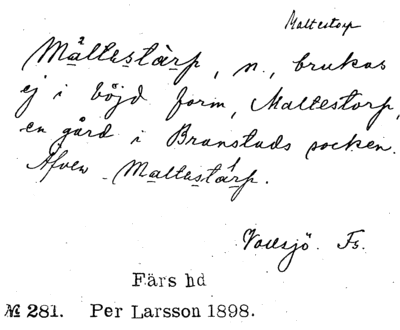 Maltestorp
Màltestàrp, n., brukas
ej i böjd form, Maltestorp,
en gård i Branstads socken.
Äfven Maltestárp.
Vollsjö. Fs.
Färs hd
№ 281. Per Larsson 1898.